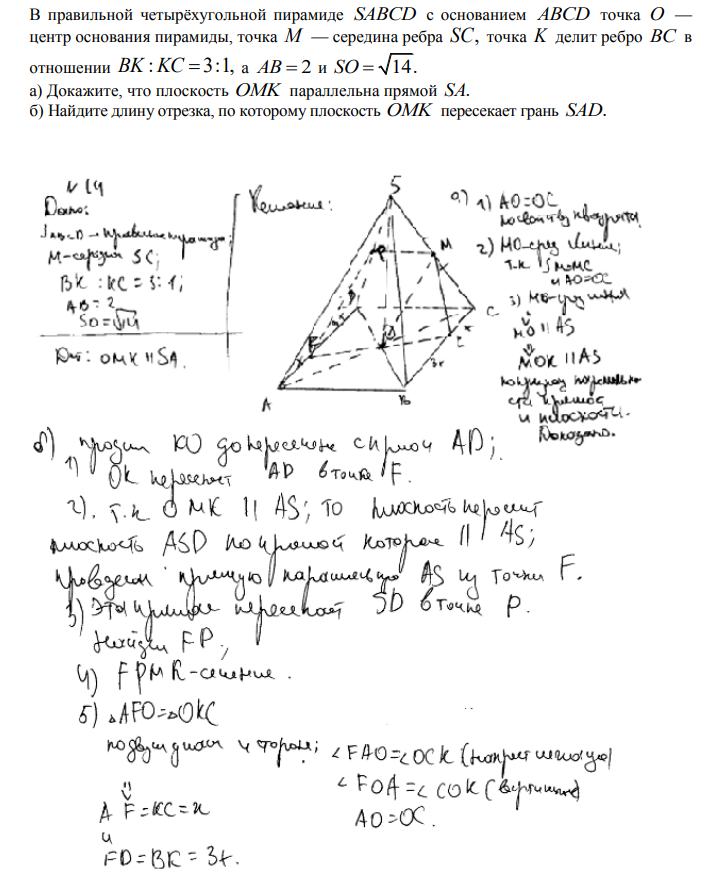 В правильной четырёхугольной пирамиде SABCD с основанием ABCD точка O —
центр основания пирамиды, точка M — середина ребра SC, точка K делит ребро BC в
отношении BK : KC = 3:1, а AB = 2 и SO = √14.
а) Докажите, что плоскость OMK параллельна прямой SA.
б) Найдите длину отрезка, по которому плоскость OMK пересекает грань SAD.
N 14
Дано:
SABCD – правильная
M – середин SC;
BK : KC = 3:1;
AB = 2
SO = √14
OMK || SA.
Решение:
S
P
M
C
F
O
K
x
3x
A
B
а) 1) AO=OC
по свойству квадрата
2) MO – сред линия;
т.к SM=MC
и AO=OC
3) MO – сред линия
⇓
MO || AS
⇓
MOK || AS
и плоскости.
Доказано.
б) продлим KO до пересечения с прямой AD;
1) OK пересекает AD в точке F.
2). т.к OMK || AS; то плоскость пересечёт
плоскость ASD по прямой которая || AS;
проведем прямую параллельную AS из точки F.
3) Эта прямая пересекает SD в точке P.
Найдем FP;
4) FPMK – сечение.
5) △AFO=△OKC
по двум углам и стороне; ∠FAO=∠OCK (накрест лежащие)
∠FOA=∠COK (вертикальные)
AO=OC.
⇓
AF=KC=x
и
FD=BK=3x.